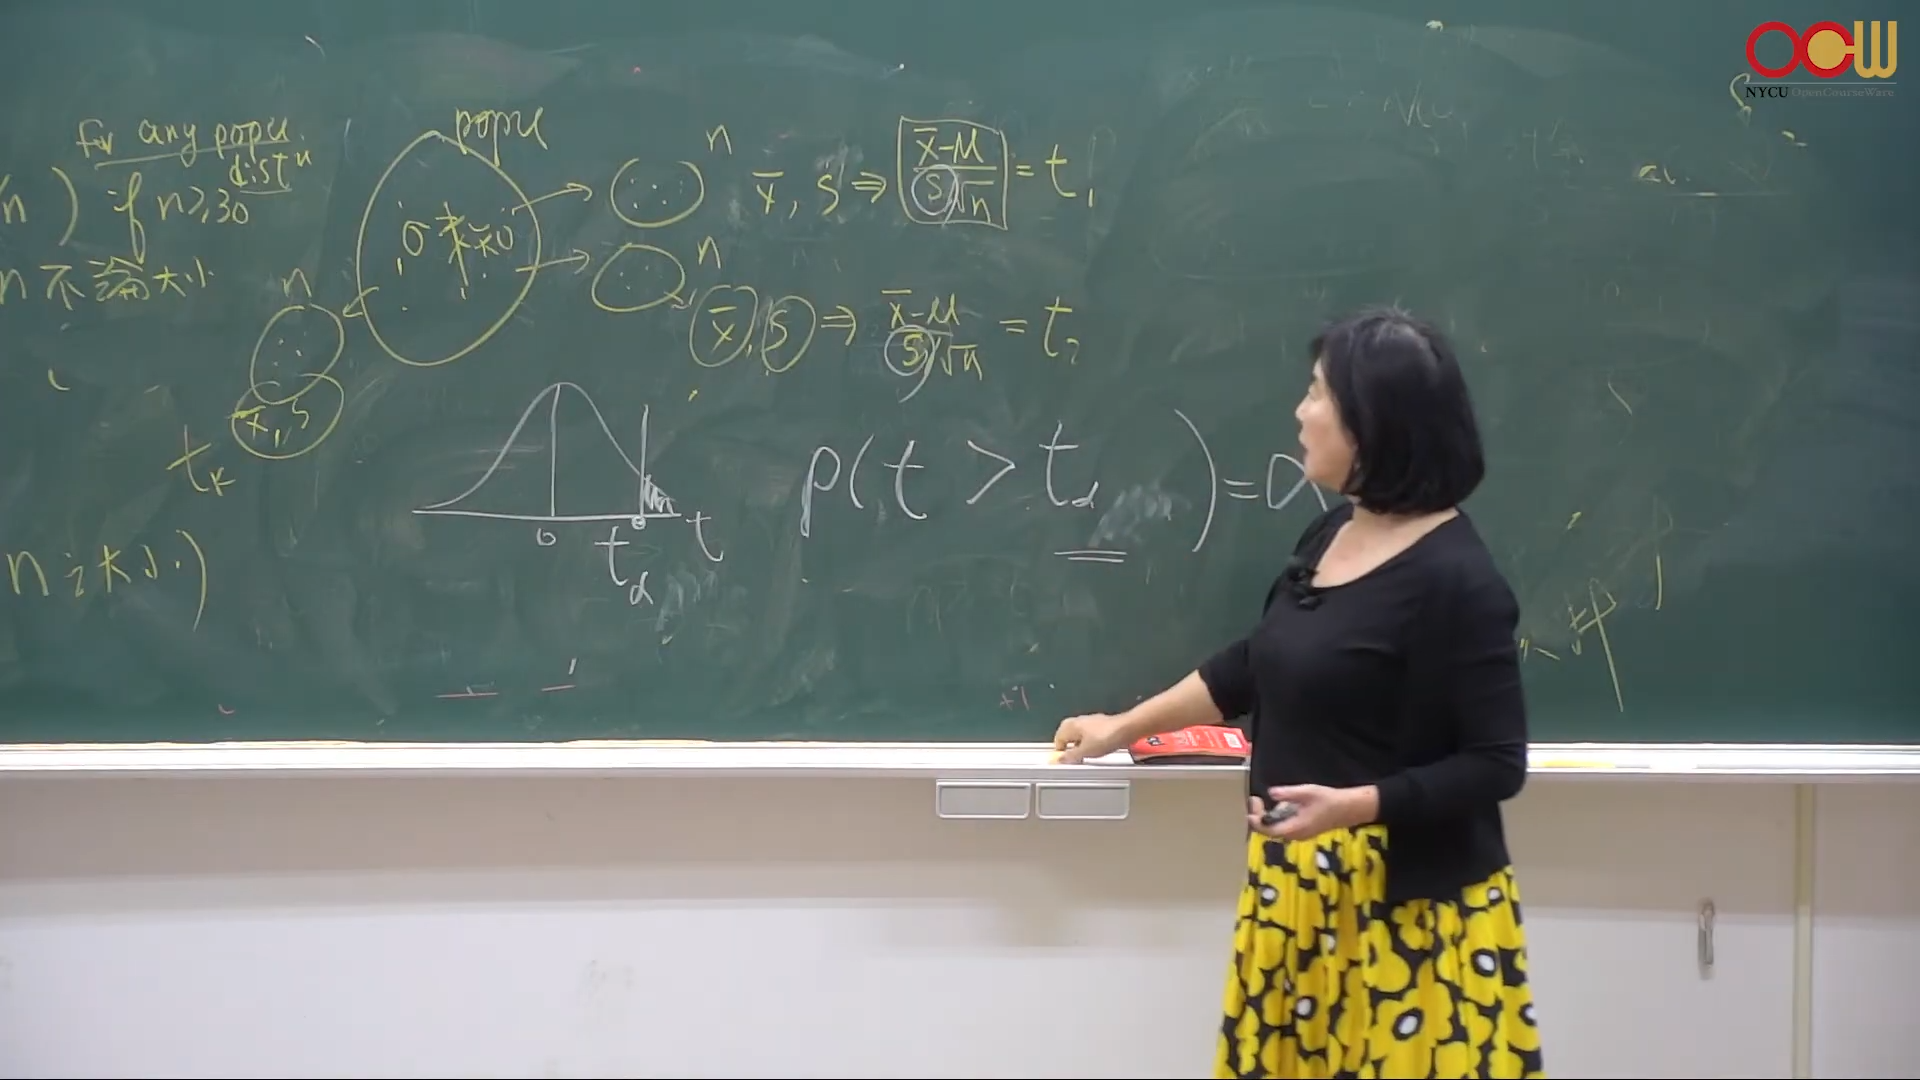 OCW
NYCU OpenCourseWare
for any popu.
distⁿ
n ) if n≥30
n 不論大小
n 之大小)
popu
σ 未知
n
x̄, s
tₖ
n
x̄, s ⇒ x̄-μ / s/√n = t₁
n
x̄, s ⇒ x̄-μ / s/√n = t₂
0 t
tα
p( t > tα ) = α